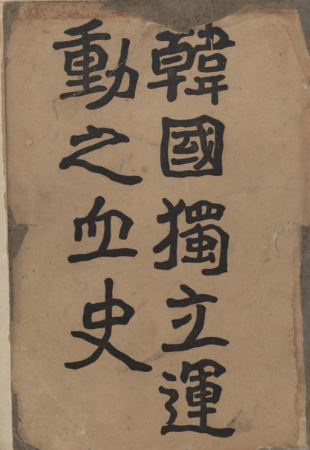 韓國獨立運
動之血史